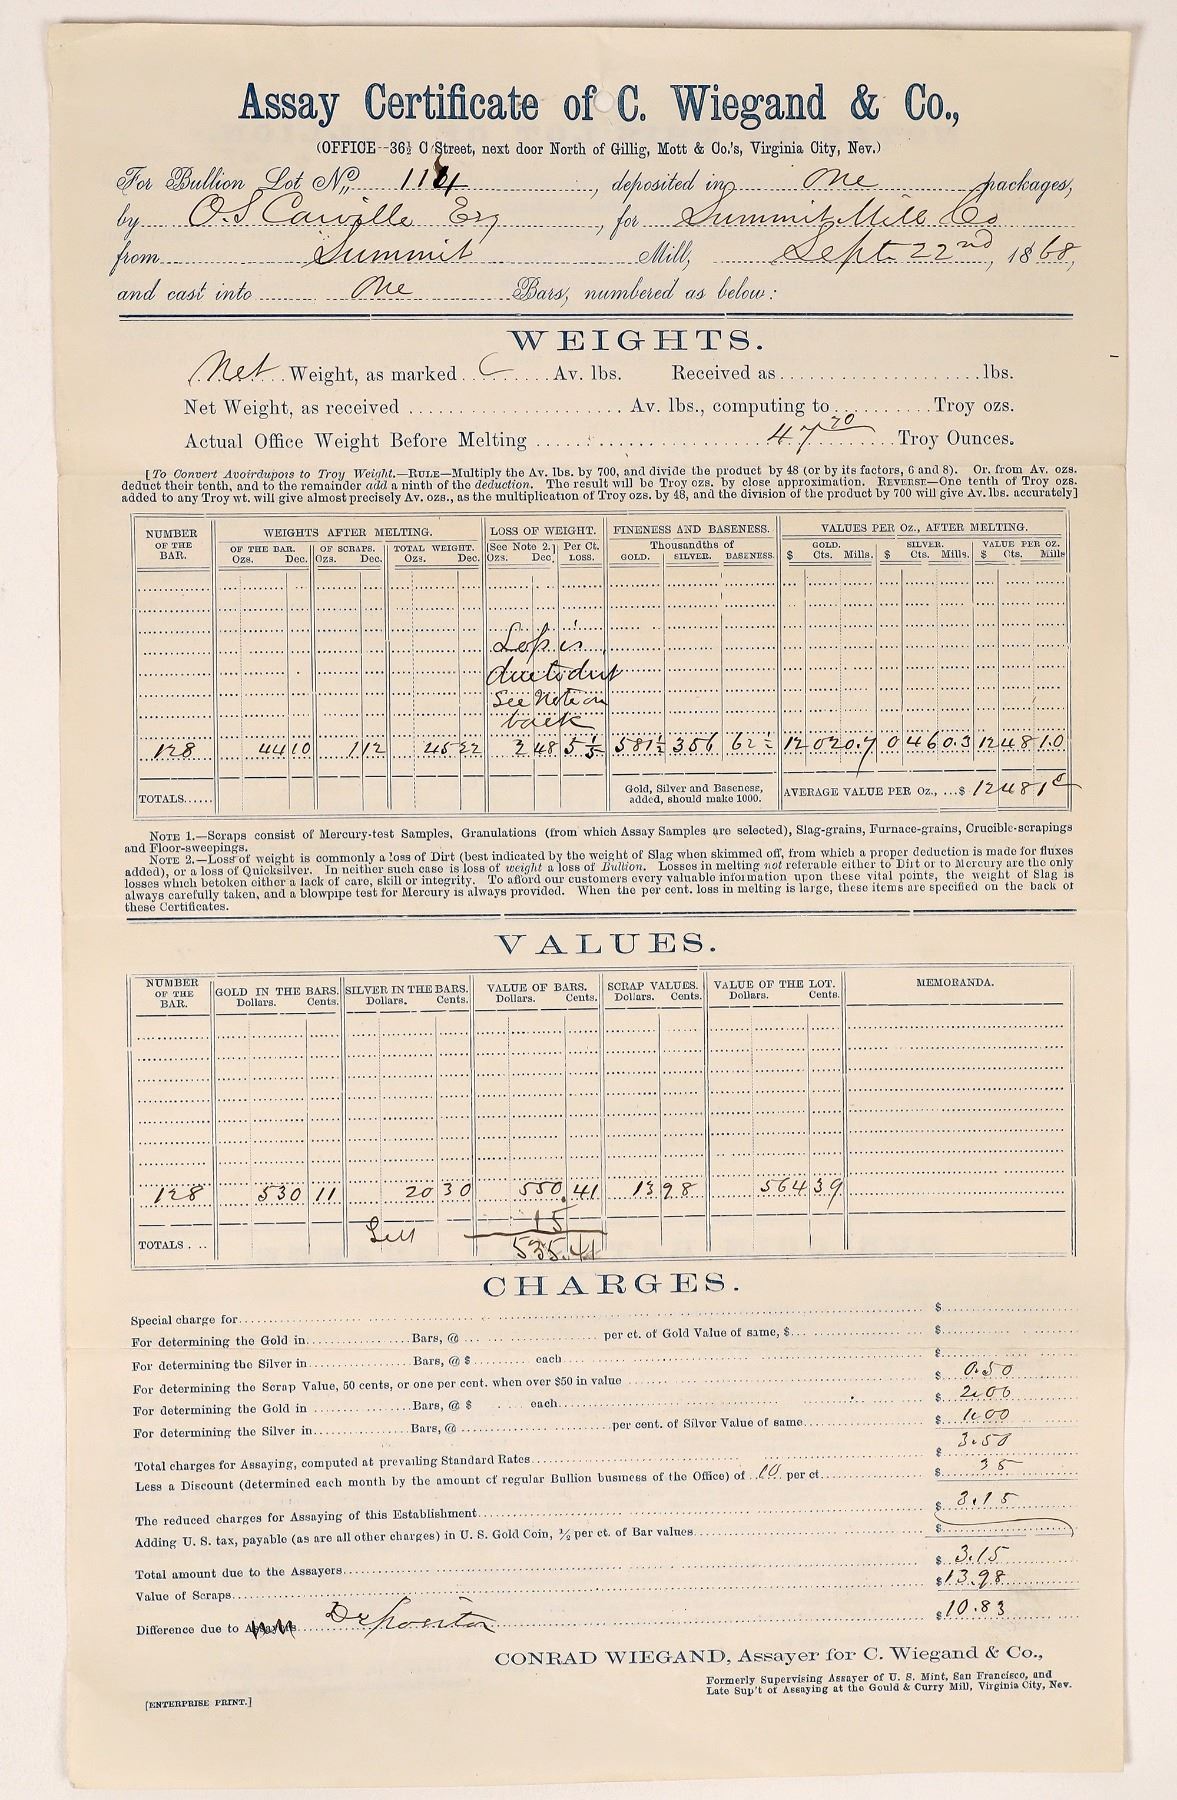 Assay Certificate of C. Wiegand & Co.,
(OFFICE--36½ C Street, next door North of Gillig, Mott & Co.'s, Virginia City, Nev.)
For Bullion Lot No. 114, deposited in One packages,
by O.S Carville Esq, for Summit Mill Co
from Summit Mill, Sept. 22nd, 1868,
and cast into One Bars, numbered as below:
WEIGHTS.
Net Weight, as marked Av. lbs. Received as lbs.
Net Weight, as received Av. lbs., computing to Troy ozs.
Actual Office Weight Before Melting 47 70 Troy Ounces.
[To Convert Avoirdupois to Troy Weight.—RULE—Multiply the Av. lbs. by 700, and divide the product by 48 (or by its factors, 6 and 8). Or. from Av. ozs.
deduct their tenth, and to the remainder add a ninth of the deduction. The result will be Troy ozs. by close approximation. REVERSE—One tenth of Troy ozs.
added to any Troy wt. will give almost precisely Av. ozs., as the multiplication of Troy ozs. by 48, and the division of the product by 700 will give Av. lbs. accurately]
NUMBER OF THE BAR. WEIGHTS AFTER MELTING. LOSS OF WEIGHT. FINENESS AND BASENESS. VALUES PER Oz., AFTER MELTING.
OF THE BAR. OF SCRAPS. TOTAL WEIGHT. [See Note 2.] Per Ct. LOSS. Thousandths of GOLD. SILVER. VALUE PER OZ.
Ozs. Dec. Ozs. Dec. Ozs. Dec. Ozs. Dec. GOLD. SILVER. BASENESS. $ Cts. Mills. $ Cts. Mills. $ Cts. Mills
Loss is
due to dirt
See Note on
back
128 44 10 1 12 45 22 2 48 5 1/5 581½ 356 62½ 12 02 0.7 0 46 0.3 12 48 1.0
TOTALS...... Gold, Silver and Baseness, added, should make 1000. AVERAGE VALUE PER Oz., ...$ 12 48 1 0
NOTE 1.—Scraps consist of Mercury-test Samples, Granulations (from which Assay Samples are selected), Slag-grains, Furnace-grains, Crucible-scrapings
and Floor-sweepings.
NOTE 2.—Loss of weight is commonly a loss of Dirt (best indicated by the weight of Slag when skimmed off, from which a proper deduction is made for fluxes
added), or a loss of Quicksilver. In neither such case is loss of weight a loss of Bullion. Losses in melting not referable either to Dirt or to Mercury are the only
losses which betoken either a lack of care, skill or integrity. To afford our customers every valuable information upon these vital points, the weight of Slag is
always carefully taken, and a blowpipe test for Mercury is always provided. When the per cent. loss in melting is large, these items are specified on the back of
these Certificates.
VALUES.
NUMBER OF THE BAR. GOLD IN THE BARS. SILVER IN THE BARS. VALUE OF BARS. SCRAP VALUES. VALUE OF THE LOT. MEMORANDA.
Dollars. Cents. Dollars. Cents. Dollars. Cents. Dollars. Cents. Dollars. Cents.
128 530 11 20 30 550.41 13 98 564 39
15
TOTALS . .. 535.41
CHARGES.
Special charge for $
For determining the Gold in Bars, @ per ct. of Gold Value of same, $ $
For determining the Silver in Bars, @ $ each $
For determining the Scrap Value, 50 cents, or one per cent. when over $50 in value $ 0.50
For determining the Gold in Bars, @ $ each $ 2.00
For determining the Silver in Bars, @ per cent. of Silver Value of same $ 1.00
Total charges for Assaying, computed at prevailing Standard Rates $ 3.50
Less a Discount (determined each month by the amount of regular Bullion business of the Office) of 10 per ct $ 35
The reduced charges for Assaying of this Establishment $ 3.15
Adding U. S. tax, payable (as are all other charges) in U. S. Gold Coin, ½ per ct. of Bar values $
Total amount due to the Assayers $ 3.15
Value of Scraps $ 13.98
Difference due to Assayers Depositor $ 10.83
CONRAD WIEGAND, Assayer for C. Wiegand & Co.,
Formerly Supervising Assayer of U. S. Mint, San Francisco, and
Late Sup't of Assaying at the Gould & Curry Mill, Virginia City, Nev.
[ENTERPRISE PRINT.]